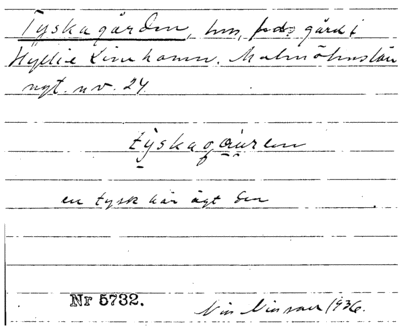 Tyskagården, hus, f.d. gård i
Hyllie Limhamn. Malmöhus län
nyt. nr. 24
tyskagåuren
en tysk har ägt den
Nr 5732.
Nils Nilsson 1936.